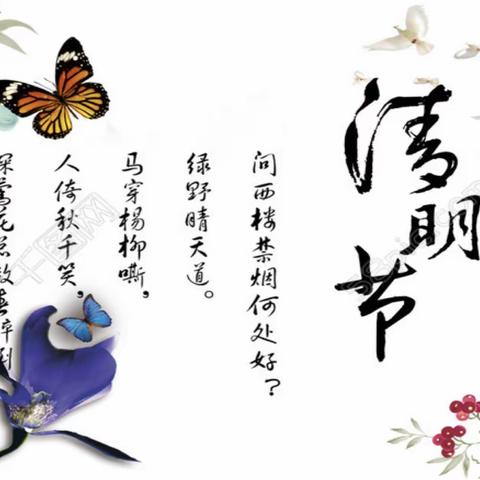 清明节
问西楼禁烟何处好?
绿野晴天道。
马穿楊柳嘶,
人倚秋千笑,
探莺花总教春醉倒